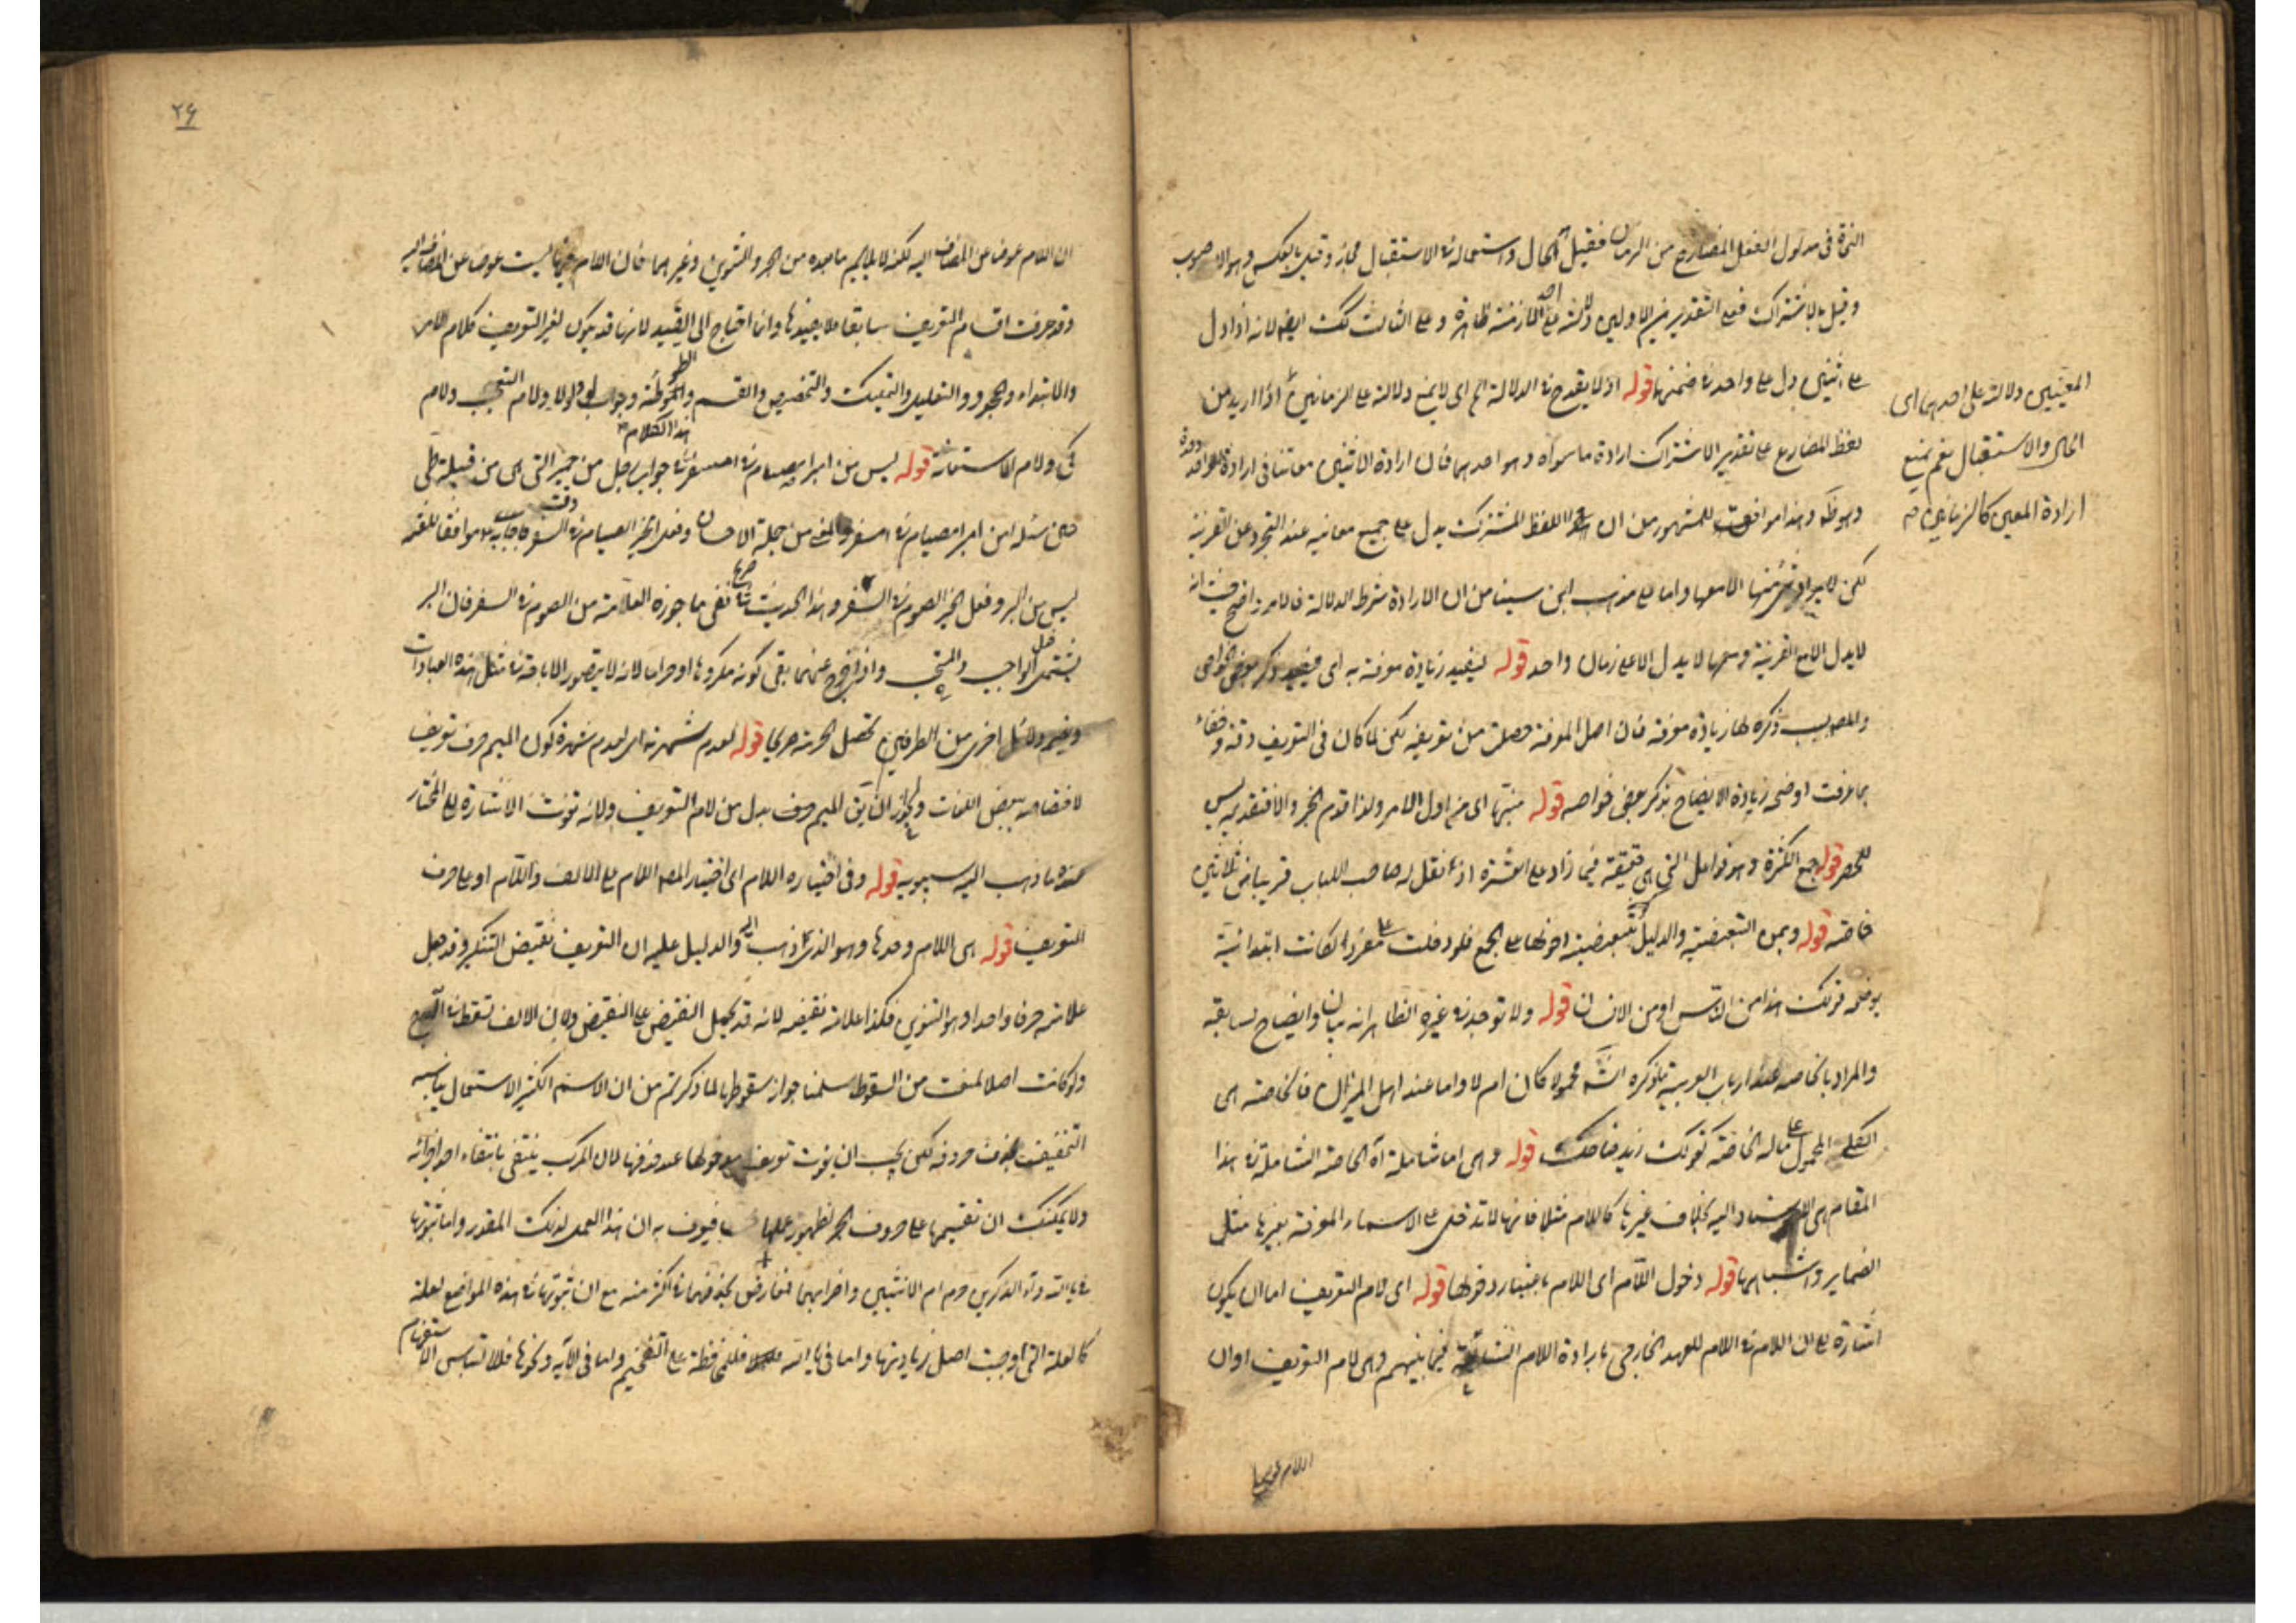 في مدلول الفعل المضارع من الزمان فقيل الحال واستعماله في الاستقبال مجاز وقيل بالعكس وهو الاصوب
وقيل بالاشتراك فعلى التقديرين الاولين دلالته على احد الازمنة ظاهرة وعلى الثالث كك ايضا لانه اذا دل
على اثنين دل على واحد في ضمنها قوله اذ لا يقدح في الدلالة الخ اى لا يمنع دلالة على الزمانين اذا اريد من
لفظ المضارع على تقدير الاشتراك ارادة ما سواه وهو احدهما فان ارادة الاثنين معا تنافى ارادة الواحد
وهذا موافق للمشهور من ان اللفظ المشترك يدل على جميع معانيه عند التجرد عن القرينة
لكن لا يراد منها الا معها واما على مذهب ابن سينا من ان الارادة شرط الدلالة فالامر واضح حيث انه
لا يدل الا مع القرينة ومعها لا يدل الا على زمان واحد قوله ليفيد زيادة معرفة به اى فيفيد ذكر بعض خواصى
والمصوب ذكره لها زيادة معرفة فان اصل المعرفة حصلت من تعريفه لكن لما كان فى التعريف دقة وخفاء
بما عرفت اوضحه زيادة الايضاح بذكر بعض خواصه قوله منبها اى من اول الامر ولذا قدم الخبر والا فتقديمه ليس
للحصر قوله جمع الكثرة وهو فواعل التى هى حقيقة فيما زاد على العشرة اذ نقل له صاحب اللباب قريبا من ثلاثين
خاصة قوله وبمن التبعيضية والدليل لتبعيضية دخولها على الجمع فلو دخلت على مفرد لكانت ابتدائية
يوضحه قولك هذا من الناس او من الانسان قوله ولا توجد في غيره الظاهر انه بيان وايضاح لسابقه
والمراد بالخاصة عند ارباب العربية ما ذكره الش محمولا كان ام لا واما عند اهل الميزان فالخاصة هى
الكلى المحمول على ما له الخاصة كقولك زيد ضاحك قوله وهى اما شاملة آه الخاصة الشاملة في هذا
المقام هى الاسناد اليه بخلاف غيرها كاللام مثلا فانها لا تدخل على الاسماء المعرفة بغيرها مثل
الضماير واشباهها قوله دخول اللام اى اللام باعتبار دخولها قوله اى لام التعريف اما ان يكون
اشارة الى ان اللام في اللام للعهد الخارجى بارادة اللام الشائعة فيما بينهم وهى لام التعريف او ان
اللام عوض
المعنيين دلالته على احدهما اى
الحال والاستقبال نعم يمنع
ارادة المعين كالزمانين
٢۶
ان اللام عوض عن المضاف اليه لكنه لا يلايم ما بعده من الجر والتنوين وغيرهما فان اللام فيها ليست عوضا عن المضاف اليه
وقد عرفت اقسام التعريف سابقا فلا نعيدها وانما احتاج الى التقييد لانها قد يكون لغير التعريف كلام الامر
والابتداء والجحود والتعليل والتبكيت والتخصيص والقسم والموطئة وجواب لو ولولا ولام التعجب ولام
كى ولام الاستغاثة قوله ليس من امبر امصيام في امسفر هذا الكلام في جواب رجل من حمير التى هى من قبيلة طى
حين سئله امن امبر امصيام في امسفر من جملة الاحسان وفعل الخير الصيام في وقت السفر فاجابه موافقا للغته
ليس من البر وفعل الخير الصوم في السفر وهذا الحديث صريحا نفى ما جوزه العلامة من الصوم في السفر فان البر
يشتمل الواجب والمستحب واذا خرج عنهما بقى كونه مكروها او حراما لانه لا يتصور الاباحة في مثل هذه العبادات
وبضم دلائل اخرى من الطرفين تحصل الحرمة صريحا قوله لعدم شهرته اى لعدم شهرة كون الميم حرف تعريف
لاختصاصه ببعض اللغات ويجوز ان يق الميم حرف بدل من لام التعريف ولانه تفوت الاشارة الى المختار
عنده ما ذهب اليه سيبويه قوله وفى اختياره اللام اى اختيار المص اللام على الالف واللام او على حرف
التعريف قوله هى اللام وحدها وهو الذى ذهب اليه والدليل عليه ان التعريف نقيض التنكير وقد جعل
علامته حرفا واحدا وهو التنوين فكذا علامة نقيضه لانه قد يحمل النقيض على النقيض ولان الالف تسقط في الدرج
ولو كانت اصلا لمنعت من السقوط سلمنا جواز سقوطها لما ذكرتم من ان الاسم الكثير الاستعمال يناسبه
التخفيف بحذف حروفه لكن يجب ان يفوت تعريف مدخولها عند حذفها لان المركب ينتفى بانتفاء احد اجزائه
ولا يمكنك ان تقيسها على حروف الجر لظهور عملها فيعرف به ان هذا العمل لذلك المقدر واما ثبوتها
في يا الله وفى الذكرين حرم ام الانثيين واضرابهما فمعارض بحذفها في اكثر منه مع ان ثبوتها في هذه المواضع لعلة
كالعلة التى اوجبت اصل زيادتها واما فى يا الله فللمحافظة على التفخيم واما فى الآية ونحوها فلالتباس الاستفهام